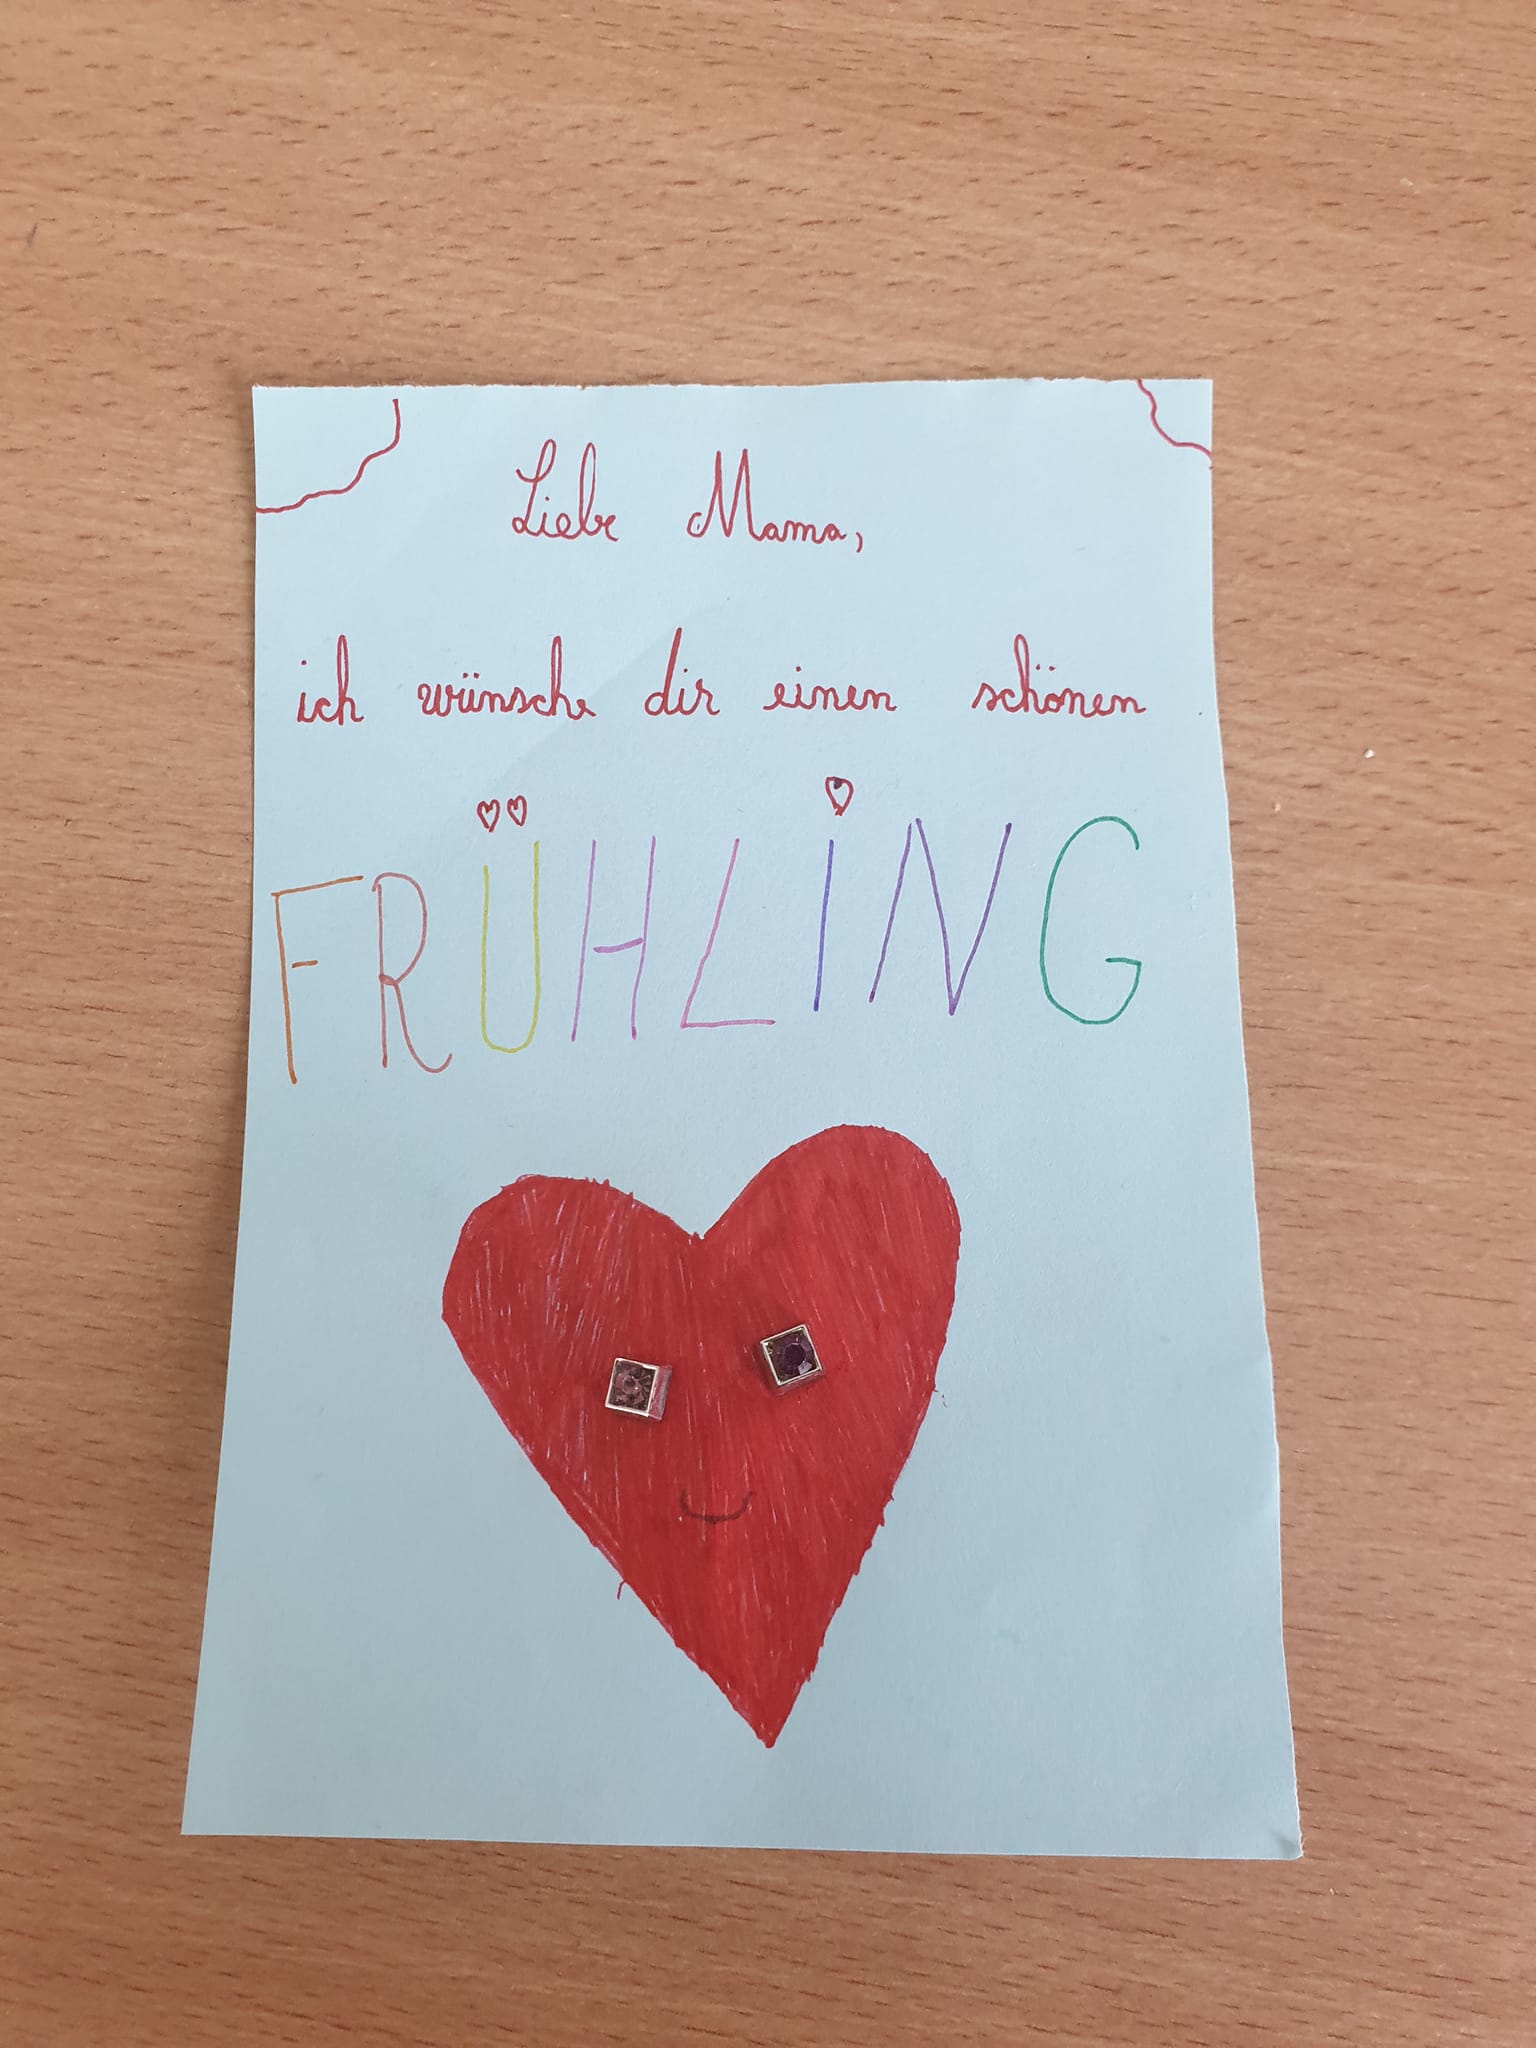 Liebe Mama,
ich wünsche dir einen schönen
FRÜHLING